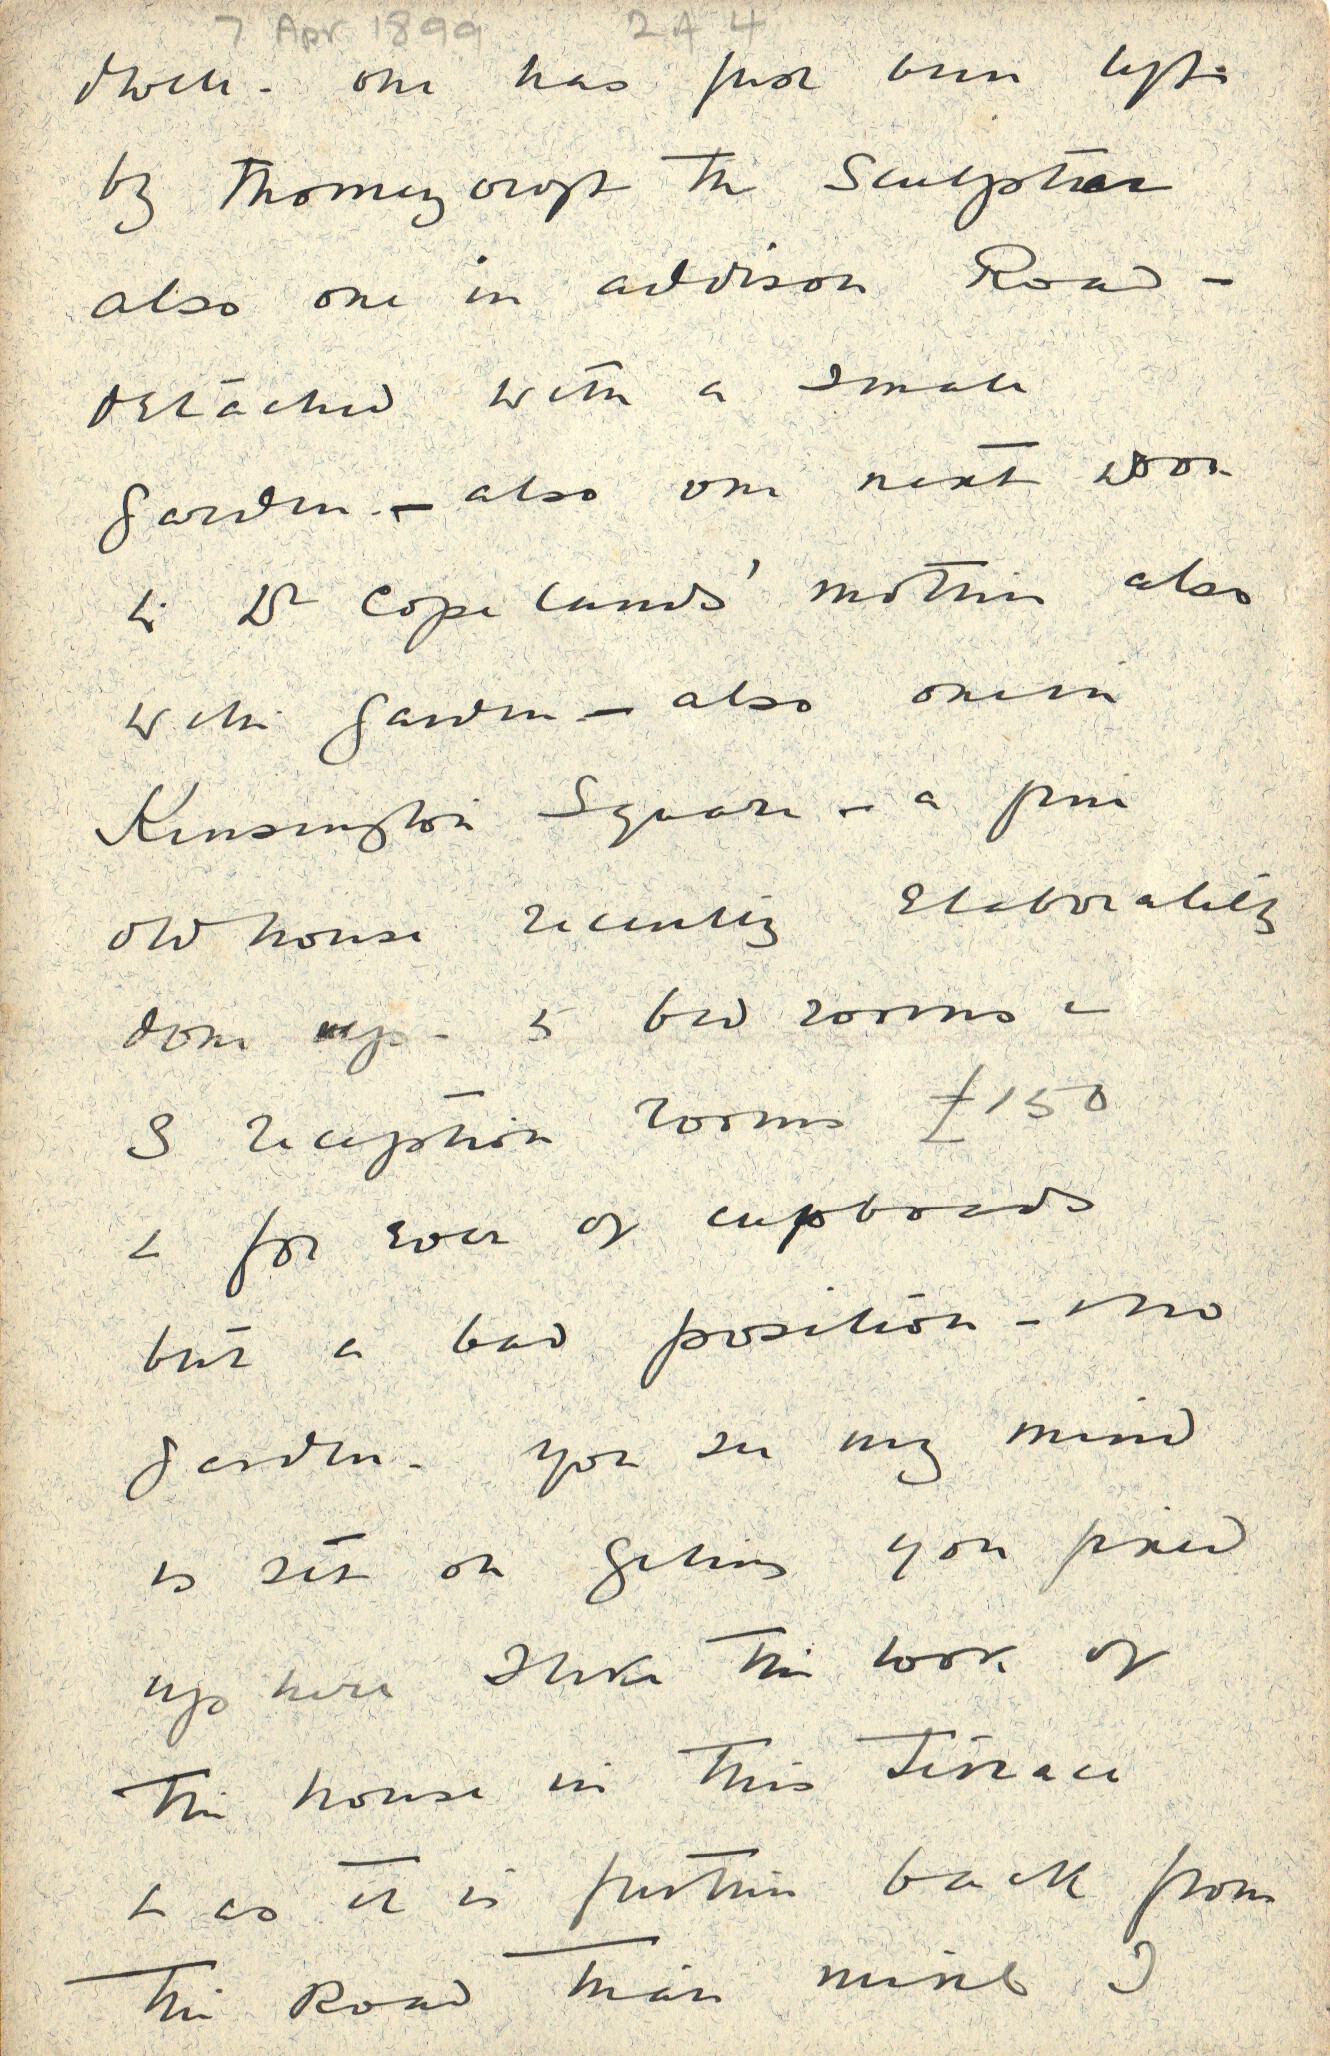 7 Apr 1899 2A4
dwell - one has just been left
by Thorneycroft the Sculptor
also one in addison Road -
detached with a small
garden. - also one next door
to Dr Copelands' mother also
with garden - also one in
Kensington Square - a fine
old house recently Elaborately
done up - 5 bed rooms &
3 reception rooms £150
& for Ever of cupboards
but a bad position - & no
garden - you see my mind
is set on getting you fixed
up here I like the look of
the house in this Terrace
& as it is further back from
the Road than mine I